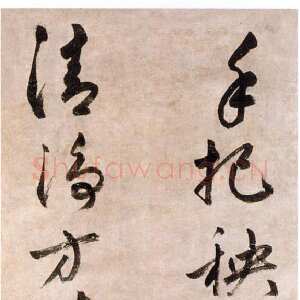 手把秧
清淨方
Shufawang.CN